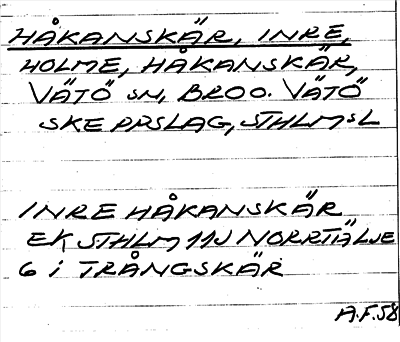 HÅKANSKÄR, INRE,
HOLME, HÅKANSKÄR,
VÄTÖ SN, BRO O. VÄTÖ
SKEPPSLAG, STHLMSL
INRE HÅKANSKÄR
EK, STHLM 11J NORRTÄLJE
6 i TRÅNGSKÄR
A.F. 58